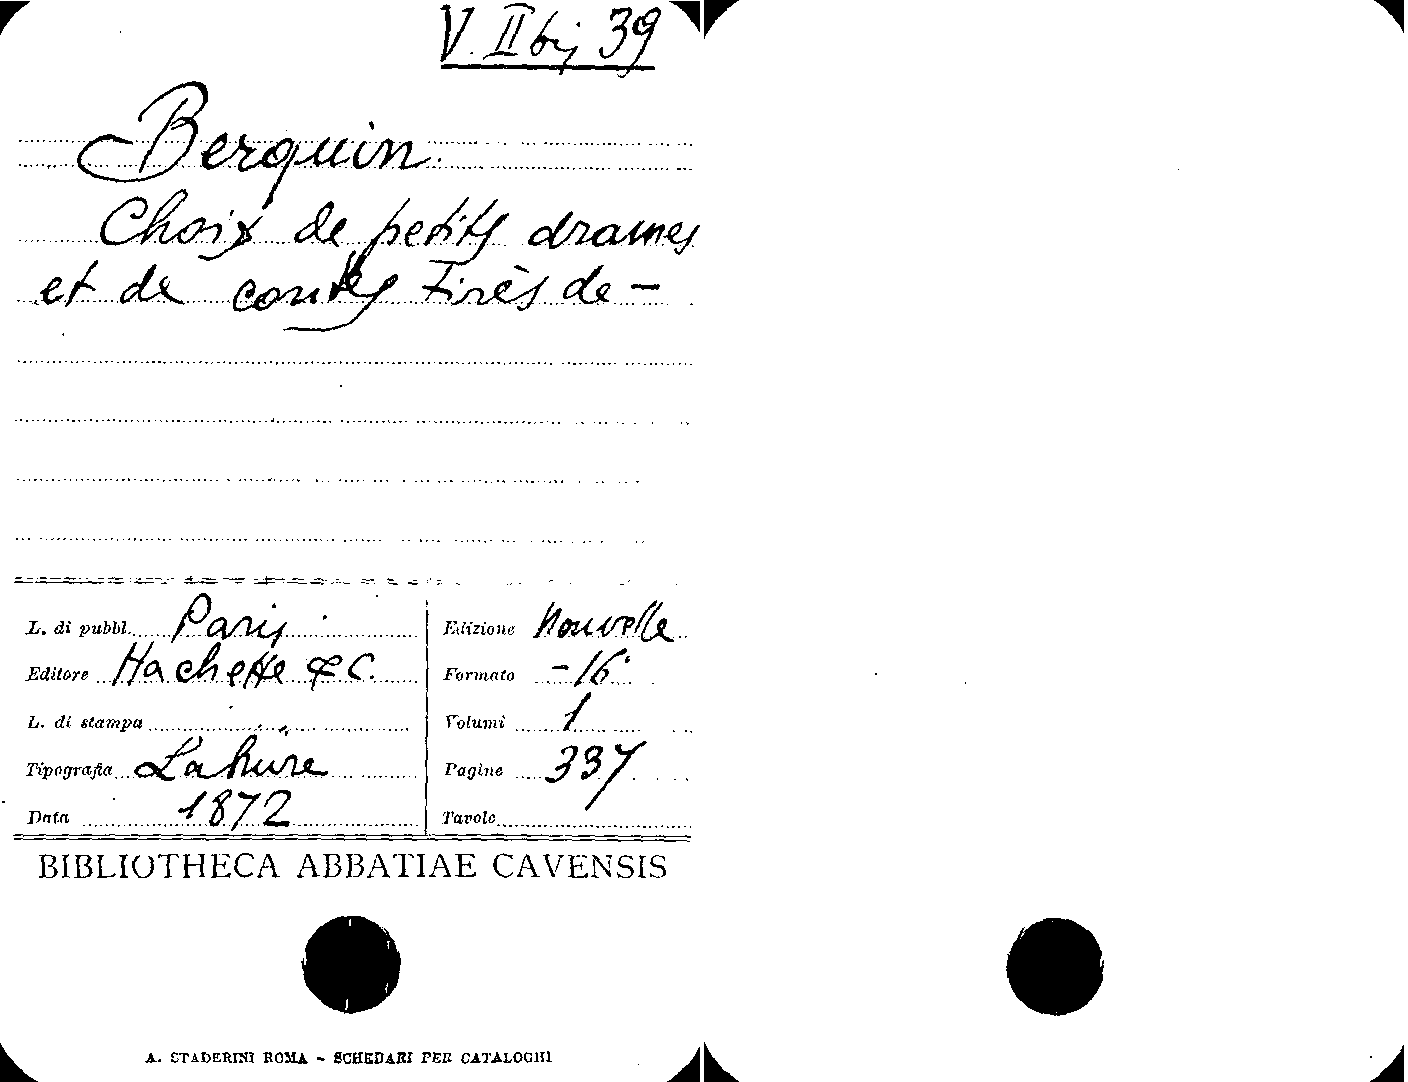 V. II bis 39
Berquin.
Choix de petits drames
et de contes tirès de —
L. di pubbl. Paris
Editore Hachette & C.
L. di stampa
Tipografia Lahure
Data 1872
Edizione Nouvelle
Formato -16°
Volumi 1
Pagine 337
Tavole
BIBLIOTHECA ABBATIAE CAVENSIS
A. STADERINI ROMA - SCHEDARI PER CATALOGHI